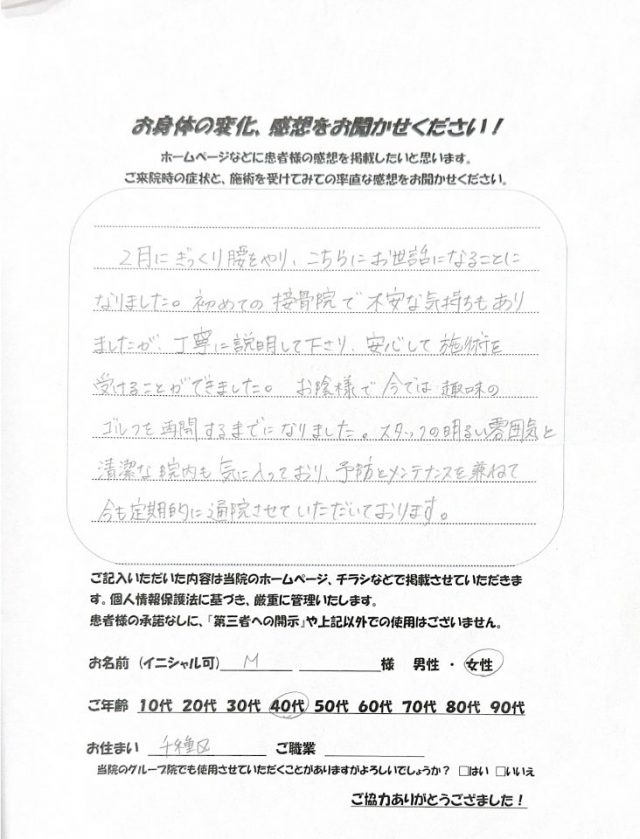 お身体の変化、感想をお聞かせください！
ホームページなどに患者様の感想を掲載したいと思います。
ご来院時の症状と、施術を受けてみての率直な感想をお聞かせください。
2月にぎっくり腰をやり、こちらにお世話になることに
なりました。初めての接骨院で不安な気持ちもあり
ましたが、丁寧に説明して下さり、安心して施術を
受けることができました。お陰様で今では趣味の
ゴルフを再開するまでになりました。スタッフの明るい雰囲気と
清潔な院内も気に入っており、予防とメンテナンスを兼ねて
今も定期的に通院させていただいております。
ご記入いただいた内容は当院のホームページ、チラシなどで掲載させていただきま
す。個人情報保護法に基づき、厳重に管理いたします。
患者様の承諾なしに、「第三者への開示」や上記以外での使用はございません。
お名前（イニシャル可） M 様 男性 ・ 女性
ご年齢 10代 20代 30代 40代 50代 60代 70代 80代 90代
お住まい 千種区 ご職業
当院のグループ院でも使用させていただくことがありますがよろしいでしょうか？ □はい □いいえ
ご協力ありがとうござました！